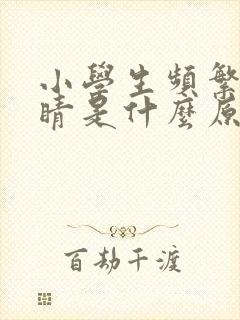 小學生頻繁
睛是什麼原
百劫千渡